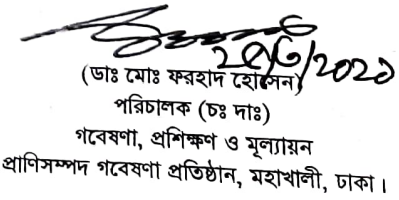 (ডাঃ মোঃ ফরহাদ হোসেন)
পরিচালক (চঃ দাঃ)
গবেষণা, প্রশিক্ষণ ও মূল্যায়ন
প্রাণিসম্পদ গবেষণা প্রতিষ্ঠান, মহাখালী, ঢাকা।